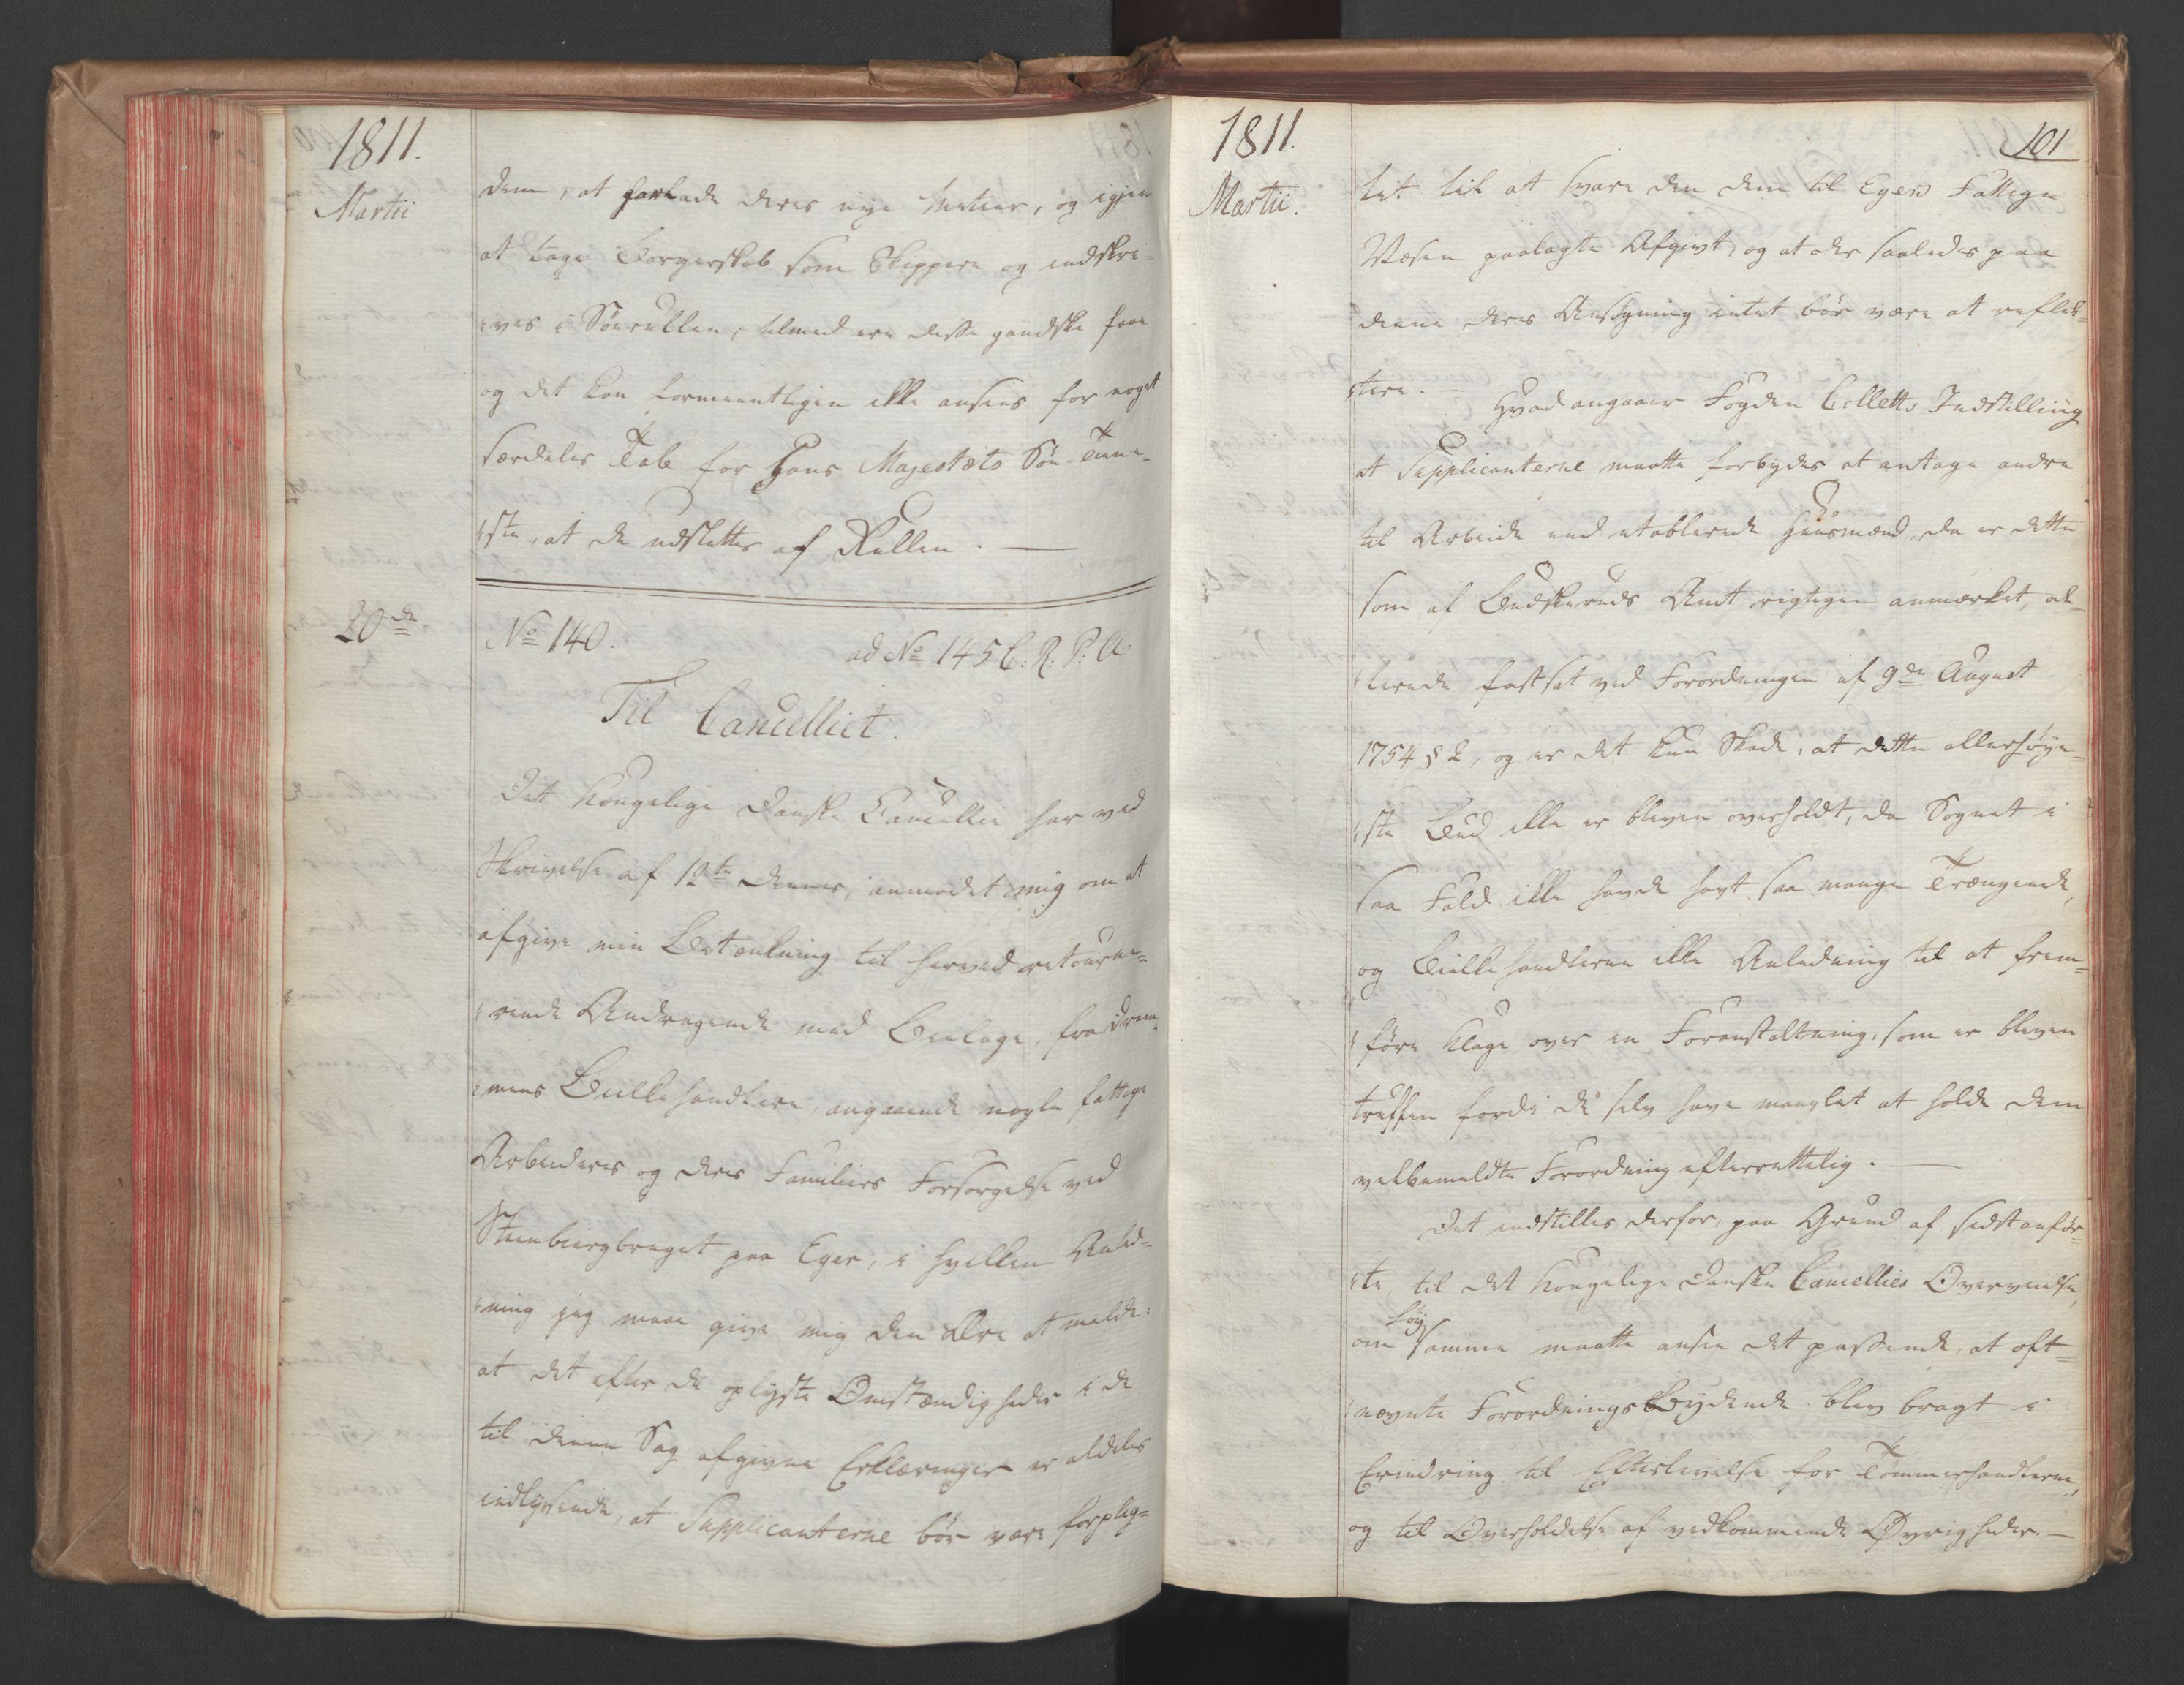 1811.
Martii
dem, at forlade deres nye Metier, og igjen
at tage Borgerskab som Skippere og indskri-
ves i Søerullen, tilmed ere disse gandske faae
og det kan formeentligen ikke ansees for noget
særdeles Tab for Hans Majestæts Søe-Tiene-
ste, at de udslettes af Rullen. —
20de
No 140.
ad No 145 C: R: P: A:
Til Cancelliet.
Det kongelige danske Cancellie har ved
Skrivelse af 12te dennes, anmodet mig om at
afgive min Betænkning til hervedretourne-
rende Andragende med Beelage, fra Dram-
mens Bielkehandlere, angaaende nogle fattige
Arbeideres og deres Familiers Forsørgelse ved
Steenbiergbruget paa Eger, i hvilken Anled-
ning jeg maae give mig den Ære at melde:
at det efter de oplyste Omstændigheder i de
til denne Sag afgivne Erklæringer er aldeles
indlysende, at Supplicanterne bør være forplig-
1811.
101
Martii.
tet til at svare den dem til Egers Fattige
Væsen paalagte Afgivt, og at der saaledes paa
denne deres Ansøgning intet bør være at reflec-
tere. —
Hvad angaaer Fogden Colletts Indstilling
at Supplicanterne maatte forbydes at antage andre
til Arbeide end etablerede Huusmænd, da er dette
som af Budskeruds Amt rigtigen anmærket, al-
lerede fastsat ved Forordningen af 9de August
1754 § 2, og er det kun Skade, at dette allerhøye-
ste Bud ikke er bleven overholdt, da Sognet i
saa Fald ikke havde havt saa mange Trængende,
og Bielkehandlerne ikke Anledning til at frem-
føre Klage over en Foranstaltning, som er bleven
truffen fordi de selv have manglet at holde dem
velbemeldte Forordning efterrettelig. —
Det indstilles derfor, paa Grund af sidstanfør-
te, til det kongelige danske Cancellies Overveielse,
om høysamme maatte ansee det passende, at oft-
nævnte Forordnings Bydende blev bragt i
Erindring til Efterlevelse for Tømmerhandlerne,
og til Overholdelse af vedkommende Øvrigheder. —